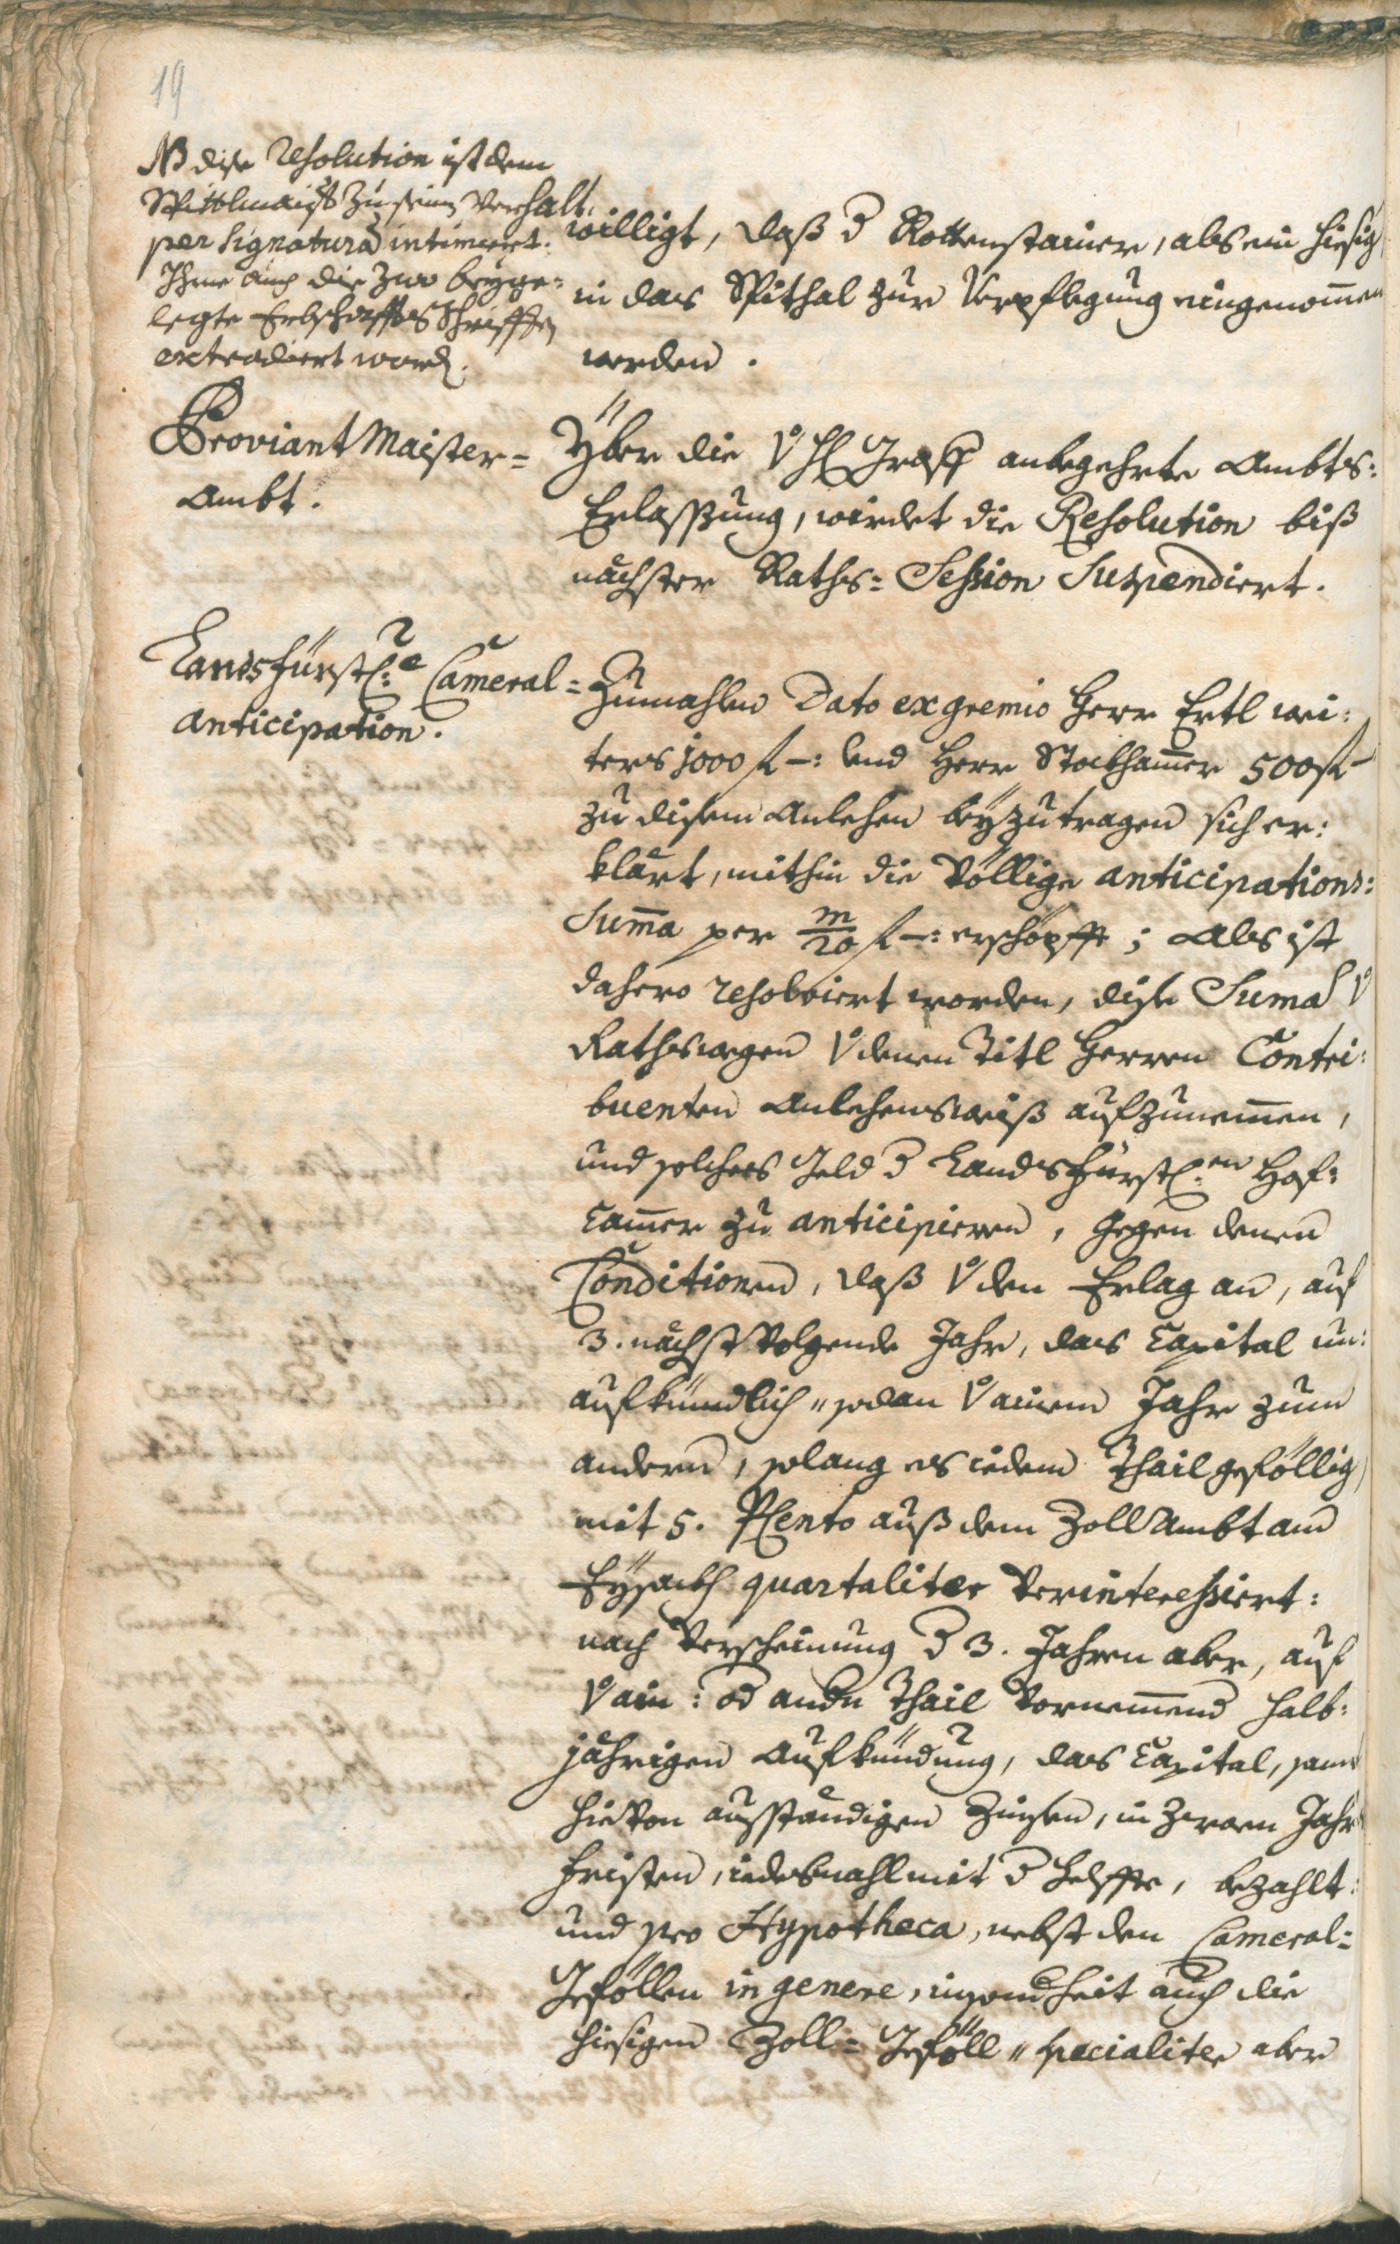 19
NB dise resolution ist dem
Spittlmaistr zu seinem Verhalt
per Signaturã intimiert:
Ihme auch die zwo beyge=
legte Erbschaffts Schrifften
extradiert word.
willigt, daß d Rottenstainer, als ein hiesig
in das Spithal zur Verpflegung eingenom̄en
werden.
Proviant Maister=
Ambt.
Yber die v H Graff anbegehrte Ambts:
Erlassßung, wirdet die Resolution biß
nächster Raths= Session Suspendiert.
Landsfürstl:e Cameral=
anticipation.
Zumahlen Dato ex gremio Herr Ertl wei:
ters 1000 f –: vnd Herr Stockham̄er 500 f –
zu disem Anlehen beyzutragen sich er:
klärt, mithin die völlige anticipations:
Sum̄a per m/20 f –: erschöpfft; Als ist
dahero resolviert worden, dise Suma v
Rathswegen v denen Titl Herren Contri:
buenten Anlehensweiß aufzunem̄en,
und solches Geld d Landsfürstl:en Hof:
Cam̄er zu anticipieren, gegen denen
Conditionen, daß v den Erlag an, auf
3. nächst volgende Jahr, das Capital un:
aufkündlich „ sodan v ainem Jahr zum
andern, solang es iedem Thail geföllig
mit 5. PCento auß dem Zoll Ambt am
Eysackh quartaliter verinteressiert:
nach verscheinung d 3. Jahren aber, auf
v ain: od andn Thail vornem̄end halb:
jährigen Aufkündung, das Capital, samt
hievon ausständigen Zinsen, in zwaen Jahrs
fristen, iedesmahl mit d helffte, bezahlt:
und pro Hypotheca, nebst den Cameral=
Geföllen in genere, insondheit auch die
hiesigen Zoll= Geföll „ specialiter aber